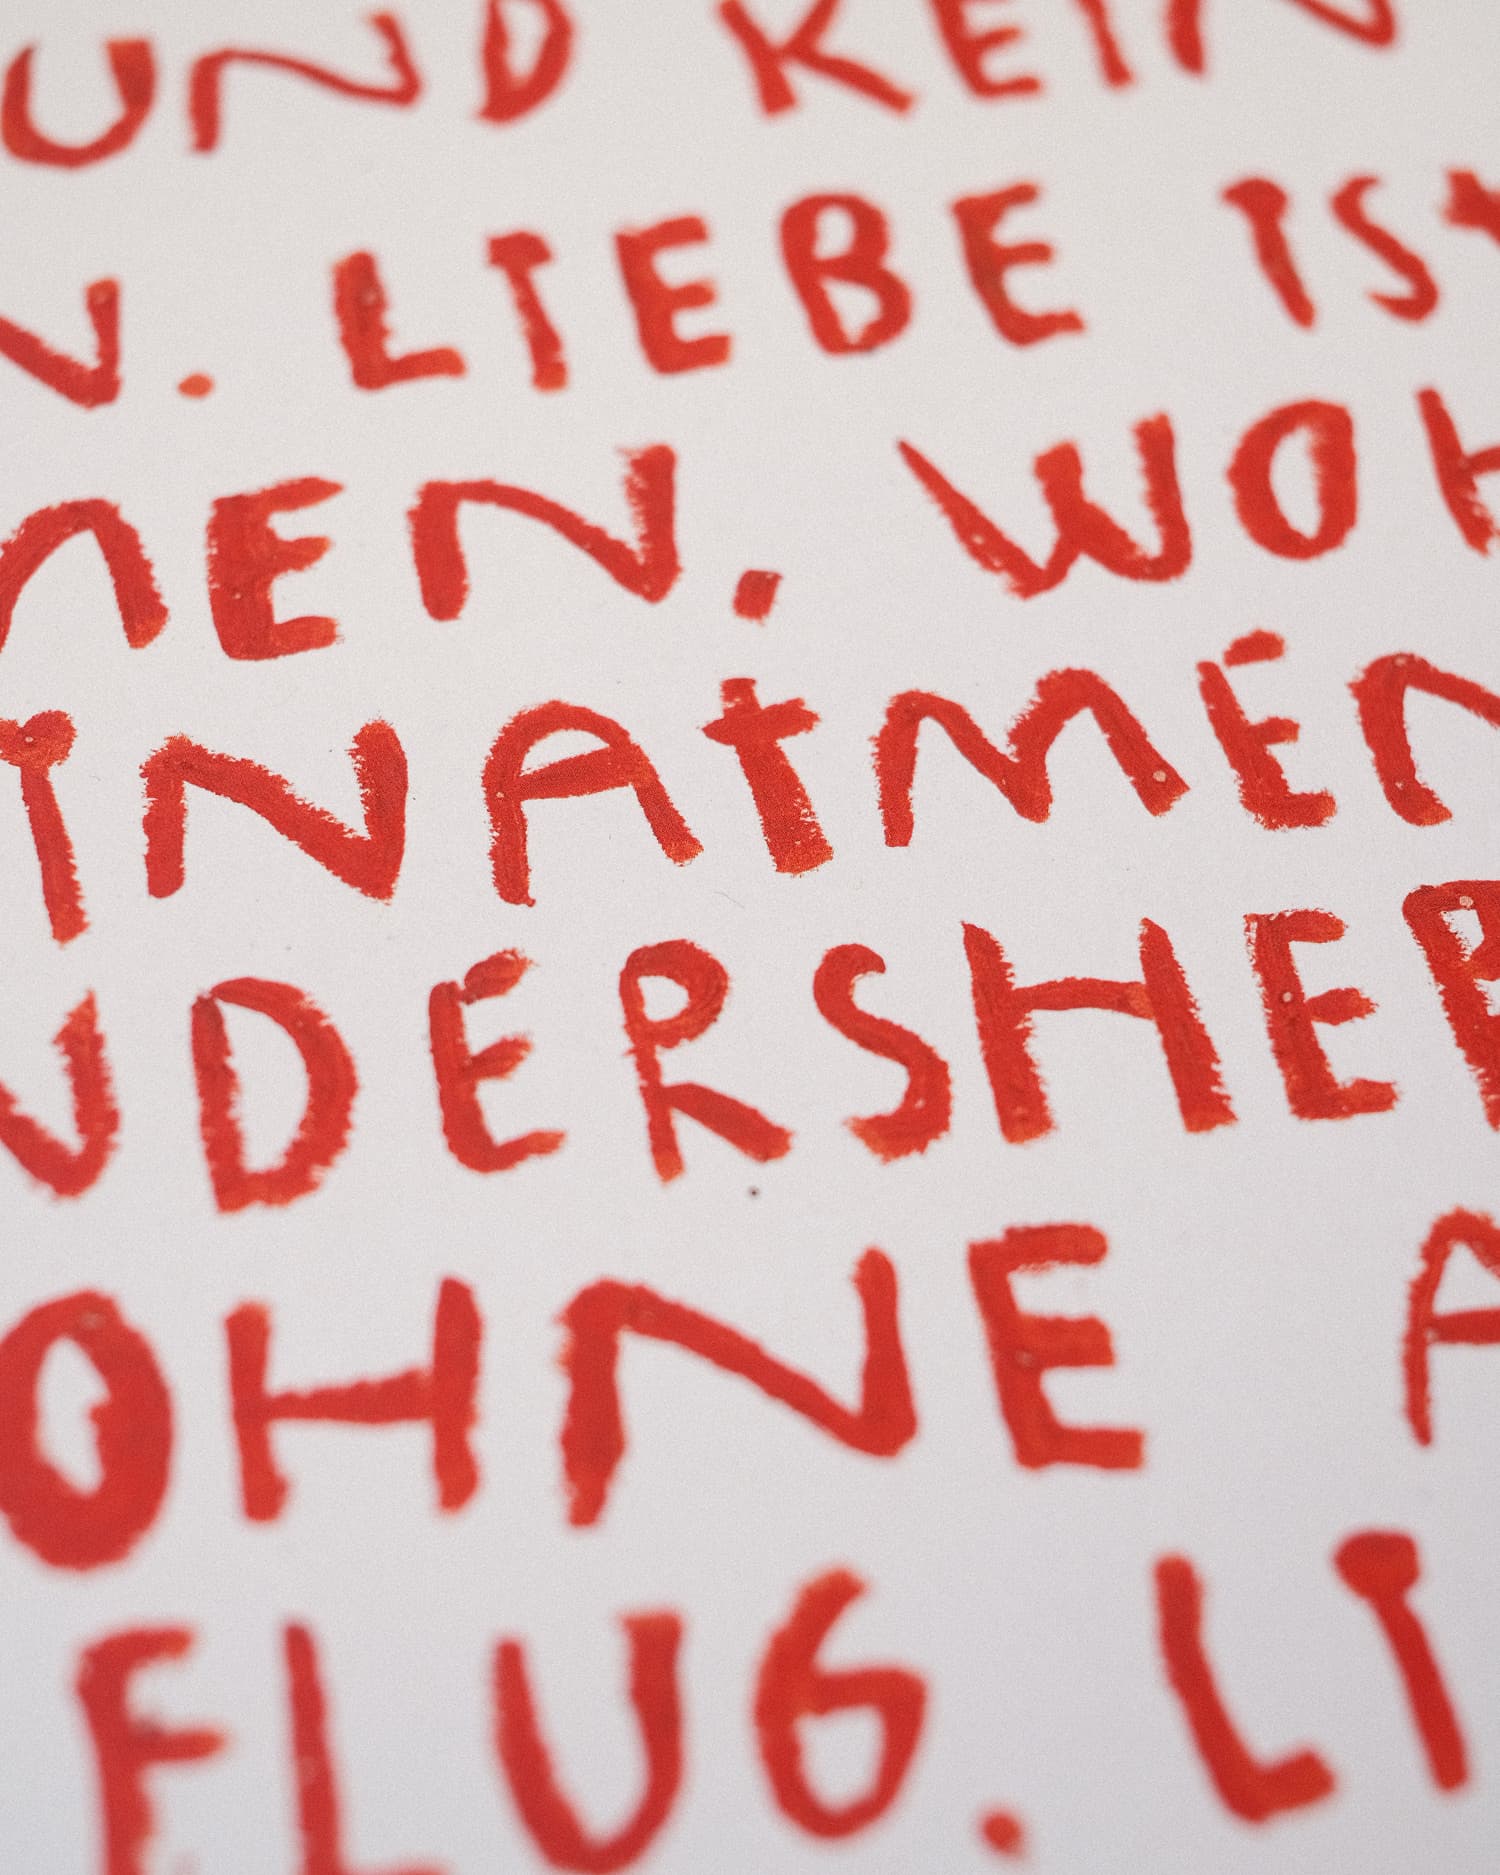 UND KEIN
N. LIEBE IST
MEN. WOH
INATMEN
NDERSHER
OHNE A
FLUG. LI